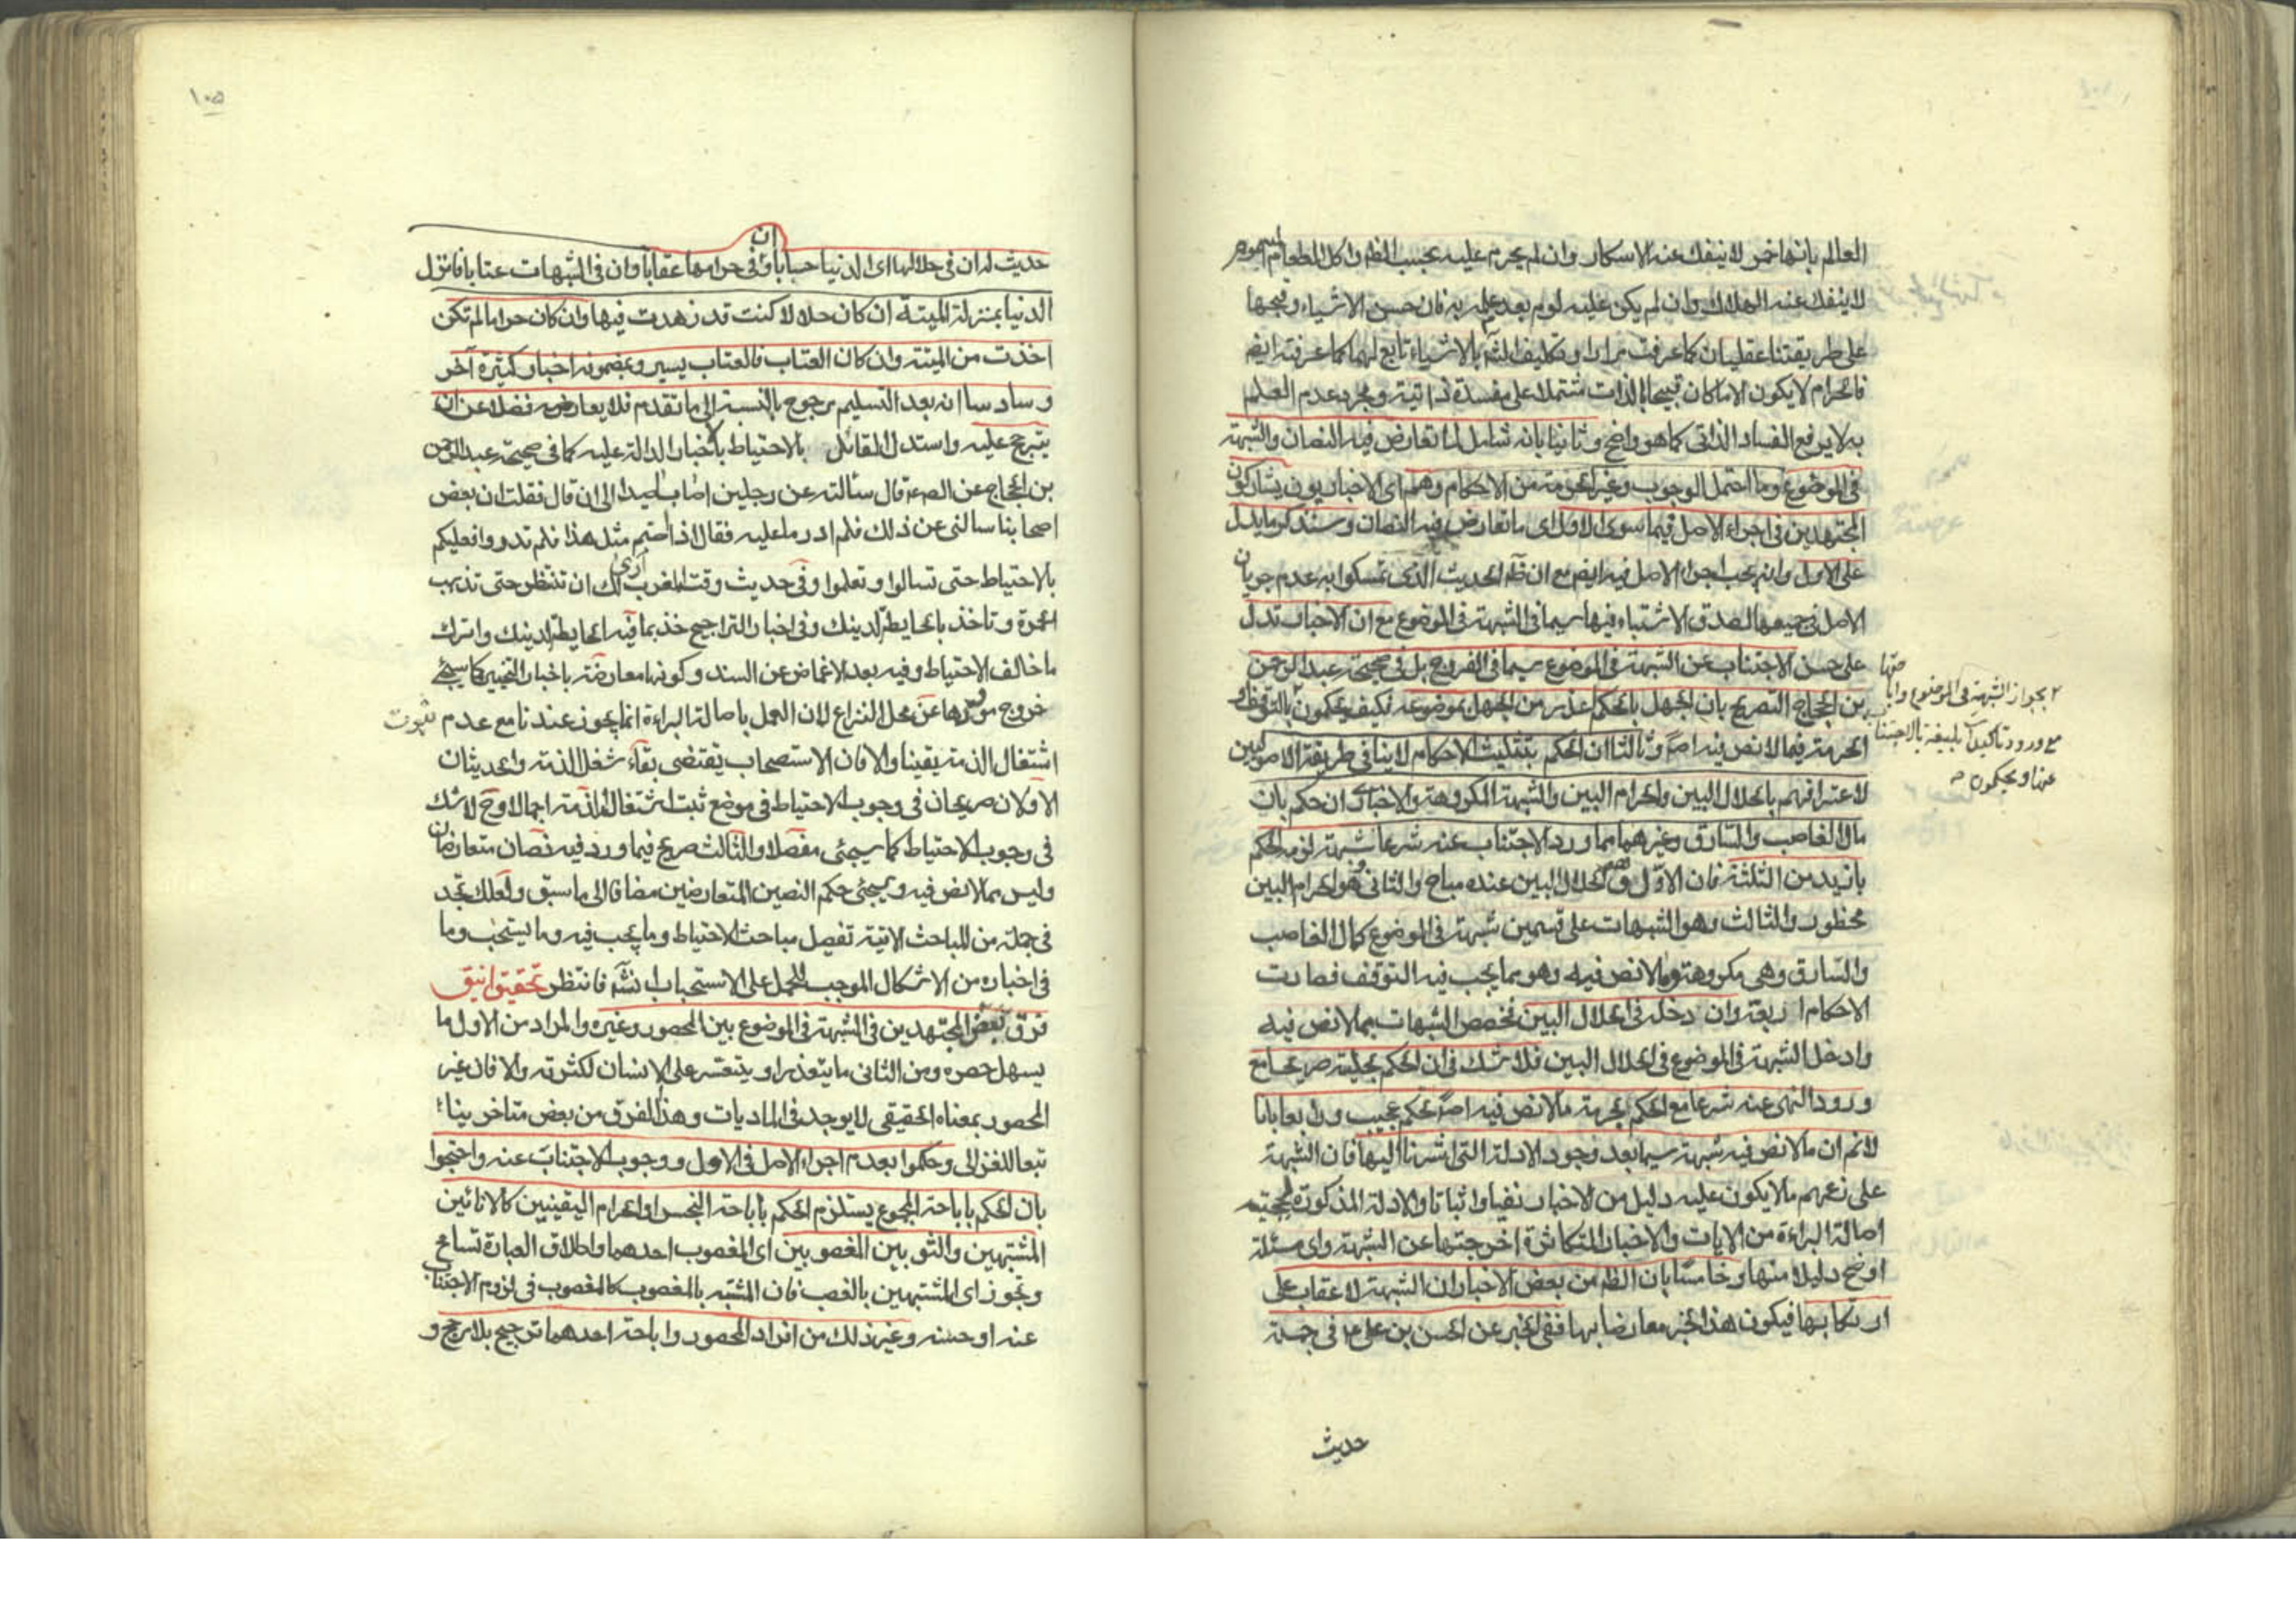 العالم بانها خمر لا ينفك عنه الاسكار وان لم يحرم عليه بحسب الظم واكل الطعام المسموم
لا ينفك عنه الهلاك وان لم يكن عليه لوم بعد علمه به فان حسن الاشياء وقبحها
على طريقتنا عقليان كما عرفت مرارا وتكليف الشم بالاشياء تابع لهما كما عرفته ايضم
فالحرام لا يكون الا ما كان قبيحا بالذات مشتملا على مفسدة ذاتية ومجرد عدم العلم
به لا يرفع الفساد الذاتى كما هو واضح وثانيا بانه شامل لما تعارض فيه النصان والشبهة
فى الموضوع وما احتمل الوجوب وغير الحرمة من الاحكام وهم اى الاخباريون يشاركون
المجتهدين فى اجراء الاصل فيما سوى الاول اى ما تعارض فيه النصان وسنذكر ما يدل
على الاول وانه يجب اجراء الاصل فيه ايضم مع ان ظم الحديث الذى تمسكوا به عدم جريان
الاصل فى جميعها لصدق الاشتباه فيها سيما فى الشبهة فى الموضوع مع ان الاخبار تدل
على حسن الاجتناب عن الشبهة فى الموضوع سيما فى الفروج بل فى صحيحة عبد الرحمن
بن الحجاج التصريح بان الجهل بالحكم اعذر من الجهل بموضوعه فكيف يحكمون بالتوقف
٢ بجواز الشبهة فى الموضوع وابا حتها
مع ورود تاكيدات بليغة بالاجتناب
عنها ويحكمون ص
الحرمة فيما لا نص فيه اصم وثالثا ان الحكم بتثليث الاحكام لا ينافى طريقة الاصوليين
لاعترافهم بالحلال البين والحرام البين والشبهة المكروهة والاخبارى ان حكم بان
مال الغاصب والسارق وغيرهما مما ورد الاجتناب عنه شرعا شبهة لزمه الحكم
بازيد من الثلثة فان الاول وهو الحلال البين عنده مباح والثانى وهو الحرام البين
محظور والثالث وهو الشبهات على قسمين شبهة فى الموضوع كمال الغاصب
والسارق وهى مكروهة وما لا نص فيه وهو مما يجب فيه التوقف فصارت
الاحكام اربعة وان دخله فى الحلال البين فخصص الشبهات بما لا نص فيه
وادخل الشبهة فى الموضوع فى الحلال البين فلا شك فى ان الحكم بحلية صريحا مع
ورود النهى عنه شرعا مع الحكم بحرمة ما لا نص فيه اصم تحكم عجيب ورابعا بانا
لا نم ان ما لا نص فيه شبهة سيما بعد وجود الادلة التى اشرنا اليها فان الشبهة
على زعمهم ما لا يكون عليه دليل من الاخبار نفيا واثباتا والادلة المذكورة لحجية
اصالة البراءة من الايات والاخبار المتكاثرة اخرجتها عن الشبهة واى مسئلة
اوضح دليلا منها وخامسا بان الظم من بعض الاخبار ان الشبهة لا عقاب على
ارتكابها فيكون هذا الخبر معارضا بها ففى الخبر عن الحسن بن على ع م فى جملة
حديث
١٠٥
حديث له ان فى حلالها اى الدنيا حسابا وفى حرامها عقابا وان فى الشبهات عتابا فانزل
ان
الدنيا بمنزلة الميتة ان كان حلالا كنت قد زهدت فيها وان كان حراما لم تكن
اخذت من الميتة وان كان العتاب فالعتاب يسير وبمضمونه اخبار كثيرة آخر
وسادسا انه بعد التسليم مرجوح بالنسبة الى ما تقدم فلا يعارضه فضلا عن ان
يترجح عليه واستدل القائل بالاحتياط بالاخبار الدالة عليه كما فى صحيحة عبد الرحمن
بن الحجاج عن الصم قال سالته عن رجلين اصابا صيدا الى ان قال فقلت ان بعض
اصحابنا سالنى عن ذلك فلم ادر ما عليه فقال اذا اصبتم مثل هذا فلم تدروا فعليكم
بالاحتياط حتى تسالوا وتعلموا وفى حديث وقت المغرب ارى لك ان تنتظر حتى تذهب
الحمرة وتاخذ بالحايطة لدينك وفى اخبار التراجيح خذ بما فيه الحايطة لدينك واترك
ما خالف الاحتياط وفيه بعد الاغماض عن السند وكونها معارضة باخبار التخيير كما سيجئ
خروج موردها عن محل النزاع لان العمل باصالة البراءة انما يجوز عندنا مع عدم ثبوت
اشتغال الذمة يقينا والا فان الاستصحاب يقتضى بقاء شغل الذمة والحديثان
الاولان صريحان فى وجوب الاحتياط فى موضع ثبت اشتغال الذمة اجمالا وح لا شك
فى وجوب الاحتياط كما سيجئ مفصلا والثالث صريح فيما ورد فيه نصان متعارضان
وليس مما لا نص فيه وسيجئ حكم النصين المتعارضين مضافا الى ما سبق ولعلك تجد
فى جملة من المباحث الاتية تفصيل مباحث الاحتياط وما يجب فيه وما يستحب وما
فى اخباره من الاشكال الموجب للحمل على الاستحباب انشم فانتظر تحقيق انيق
فرق بعض المجتهدين فى الشبهة فى الموضوع بين المحصور وغيره والمراد من الاول ما
يسهل حصره ومن الثانى ما يتعذر او يتعسر على الانسان لكثرته والا فان غير
المحصور بمعناه الحقيقى لا يوجد فى الماديات وهذا الفرق من بعض متاخرينا
تبعا للغزالى وحكموا بعدم اجراء الاصل فى الاول ووجوب الاجتناب عنه واحتجوا
بان الحكم باباحة المجموع يستلزم الحكم باباحة النجس او الحرام اليقينيين كالانائين
المشتبهين والثوبين المغصوبين اى المغصوب احدهما واطلاق العبارة تسامح
وتجوز اى المشتبهين بالغصب فان المشتبه بالمغصوب كالمغصوب فى لزوم الاجتناب
عنه او حسنه وغير ذلك من افراد المحصور واباحة احدهما ترجيح بلا مرجح و